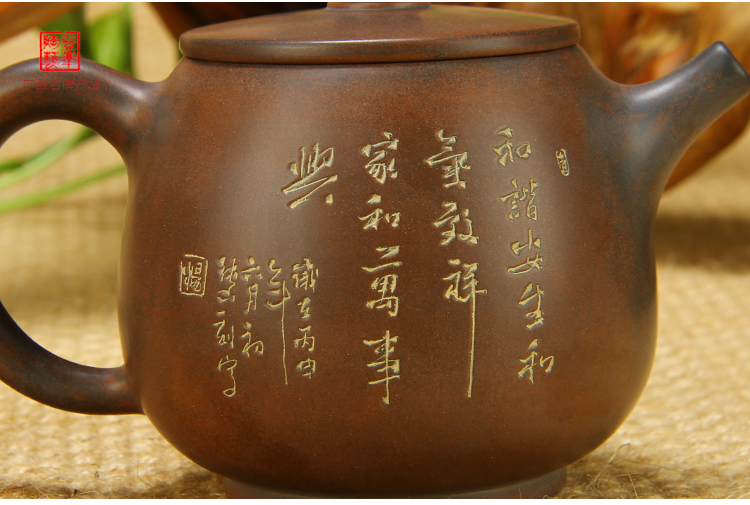 和諧安生和
氣致祥
家和萬事
興
歲在丙申
年
六月初
刻字